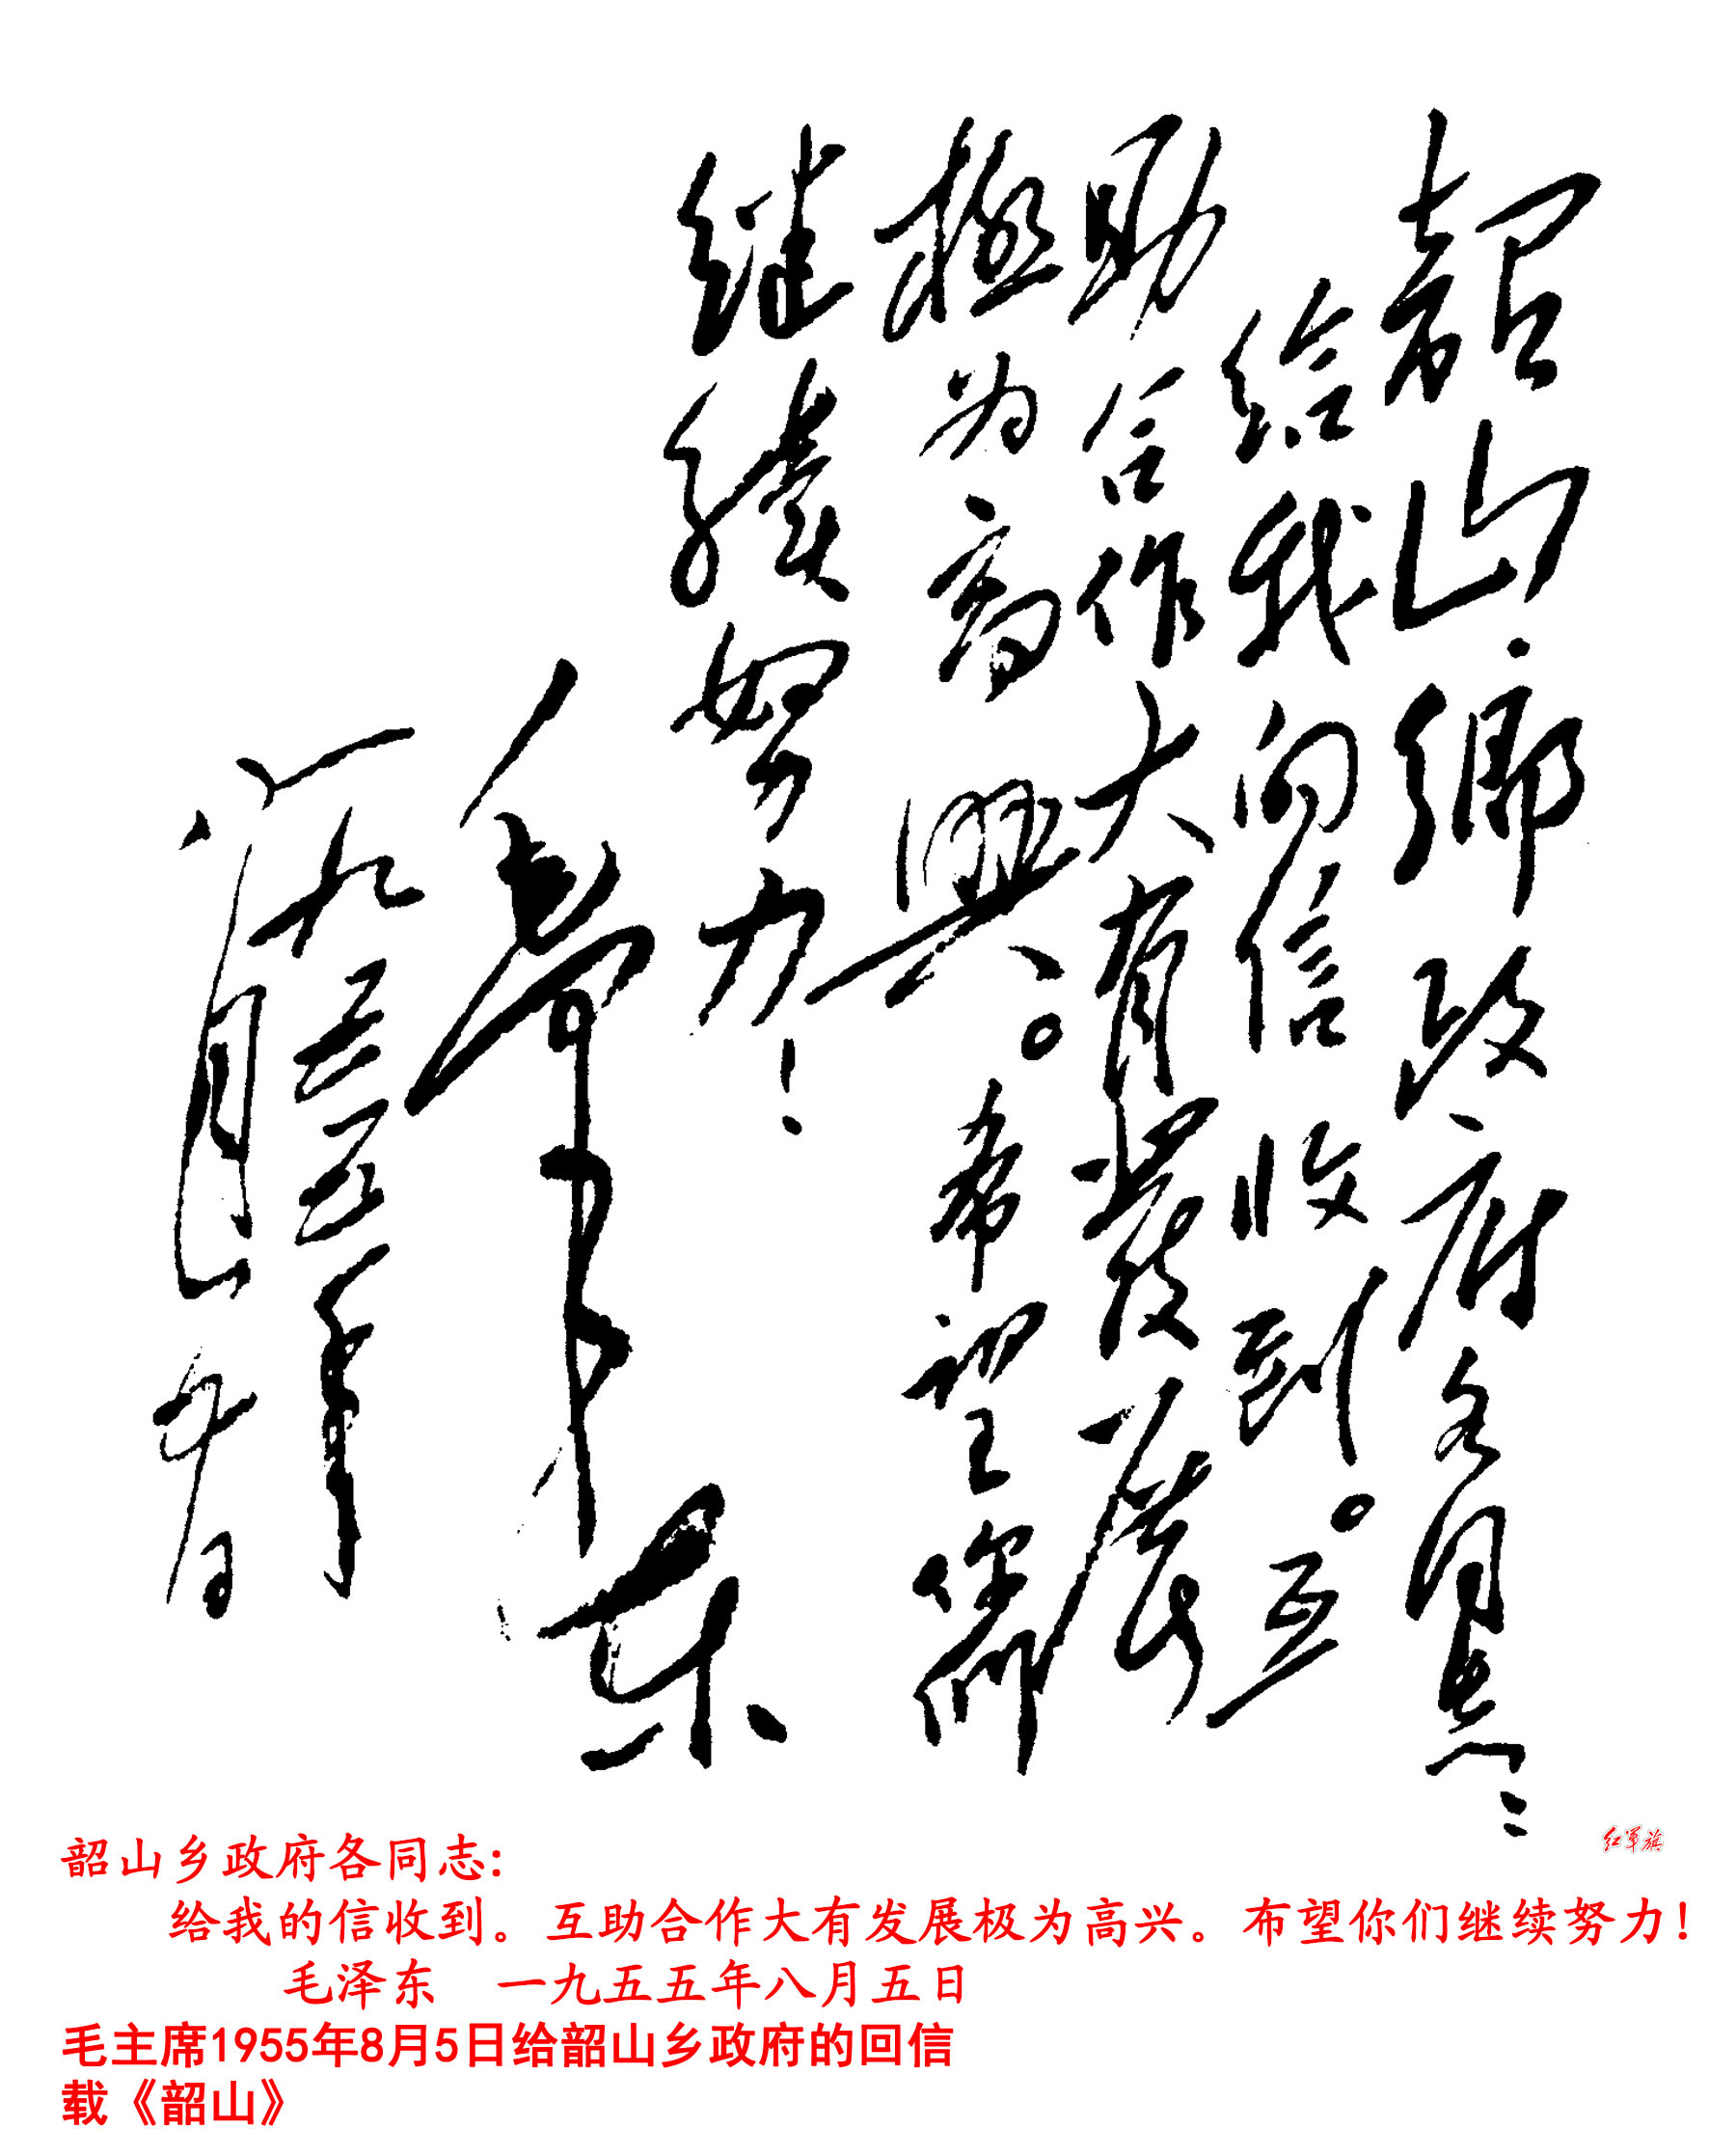 韶山鄉政府各同志：
给我的信收到。互
助合作大有發展
極为高興。希望你们
继續努力！
毛泽东
一九五五年
八月五日
红军旗
韶山乡政府各同志：
给我的信收到。互助合作大有发展极为高兴。布望你们继续努力！
毛泽东 一九五五年八月五日
毛主席1955年8月5日给韶山乡政府的回信
载《韶山》